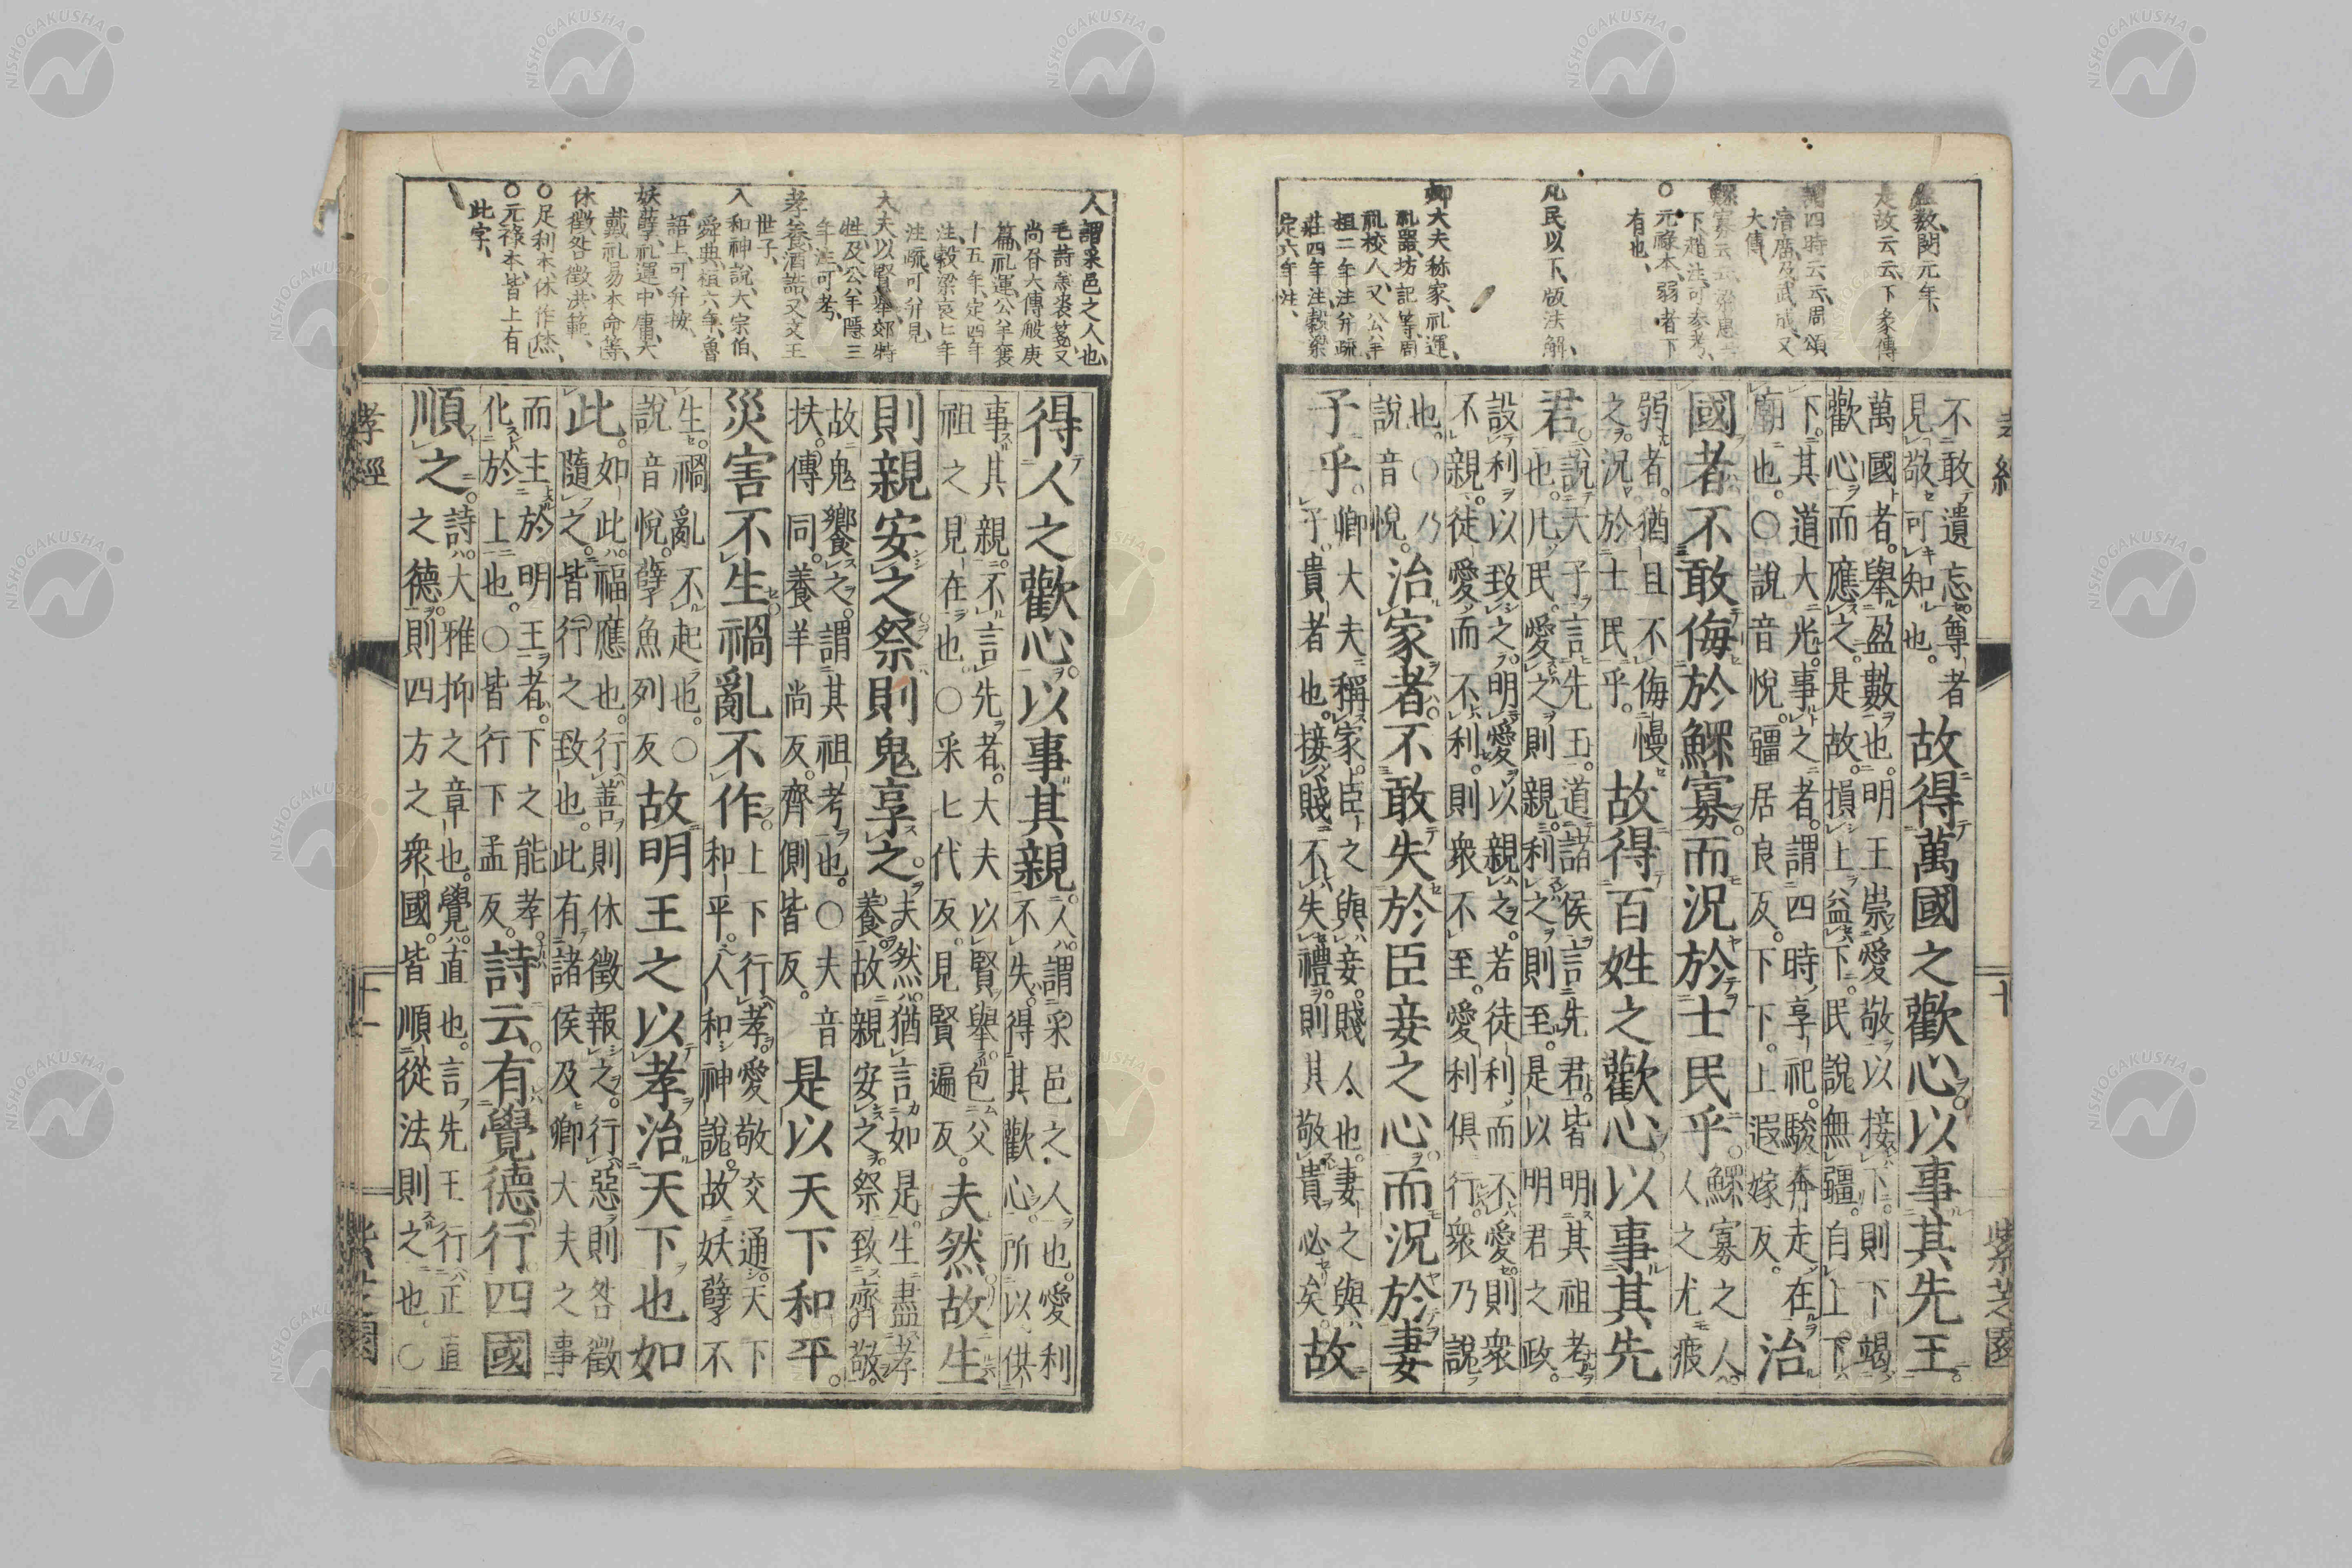 盈數、閔元年、
是故云云、下彖傳
謂四時云云、周頌
清廟、及武成、又
大傳、
鰥寡云云、梁惠王
下趙注、可參考、
○元祿本、弱者下
有也、
凡民以下、版法解、
卿大夫称家、礼運、
礼器、坊記等、周
礼校人、又公羊
桓二年注并疏
莊四年注、穀梁
定六年注、
孝經
十
紫芝園
不敢遺忘。尊者
見敬可知也。
故得萬國之歡心。以事其先王。
萬國者。舉盈數也。明王崇愛敬以接下。則下竭
歡心而應之。是故。損上益下。民說無疆。自上下
下。其道大光。事之者。謂四時享祀。駿奔走在
廟也。○說音悅。疆居良反。下下。上遐嫁反。
治
國者不敢侮於鰥寡。而況於士民乎。
鰥寡之人。
人之尤疲
弱者。猶且不侮慢
之。況於士民乎。
故得百姓之歡心。以事其先
君。
說天子言先王。道諸侯言先君。皆明其祖考
也。凡民。愛之則親。利之則至。是以明君之政。
設利以致之。明愛以親之。若徒利而不愛。則衆
不親。徒愛而不利。則衆不至。愛利俱行。衆乃說
也。○乃
說音悅。
治家者。不敢失於臣妾之心。而況於妻
子乎。
卿大夫稱家。臣之與妾。賤人也。妻之與
子。貴者也。接賤不失禮。則其敬貴必矣。
故
人謂采邑之人也、
毛詩羔裘箋、又
尚書大傳般庚
篇、礼運、公羊襄
十五年、定四年
注、穀梁哀七年
注疏、可并見、
大夫以賢舉、郊特
牲、及公羊隱三
年注、可考、
孝養、酒誥、又文王
世子、
人和神說、大宗伯、
舜典、桓六年、魯
語上、可并按、
妖孽、礼運、中庸、大
戴礼易本命等、
休徵咎徵、洪範、
○足利本、休作烋、
○元祿本、皆上有
此字、
得人之歡心。以事其親。
人。謂采邑之人也。愛利
不失。得其歡心。所以供
事其親。不言先者。大夫以賢舉。包父
祖之見在也。○采七代反。見賢遍反。
夫然。故生
則親安之。祭則鬼享之。
夫然。猶言如是。生盡孝
養。故親安之。祭致齊敬。
故鬼饗之。謂其祖考也。○夫音
扶。傳同。養羊尚反。齊側皆反。
是以天下和平。
災害不生。禍亂不作。
上下行孝。愛敬交通。天下
和平。人和神說。故妖孽不
生。禍亂不起也。○
說音悅。孽魚列反
故明王之以孝治天下也如
此。
如此。福應也。行善則休徵報之。行惡則咎徵
隨之。皆行之致也。此有諸侯及卿大夫之事。
而主於明王者。下之能孝。
化於上也。○皆行下孟反。
詩云。有覺德行。四國
順之。
詩。大雅抑之章也。覺。直也。言先王行正直
之德。則四方之衆國。皆順從法則之也。○
孝經
十一
紫芝園
NISHOGAKUSHA